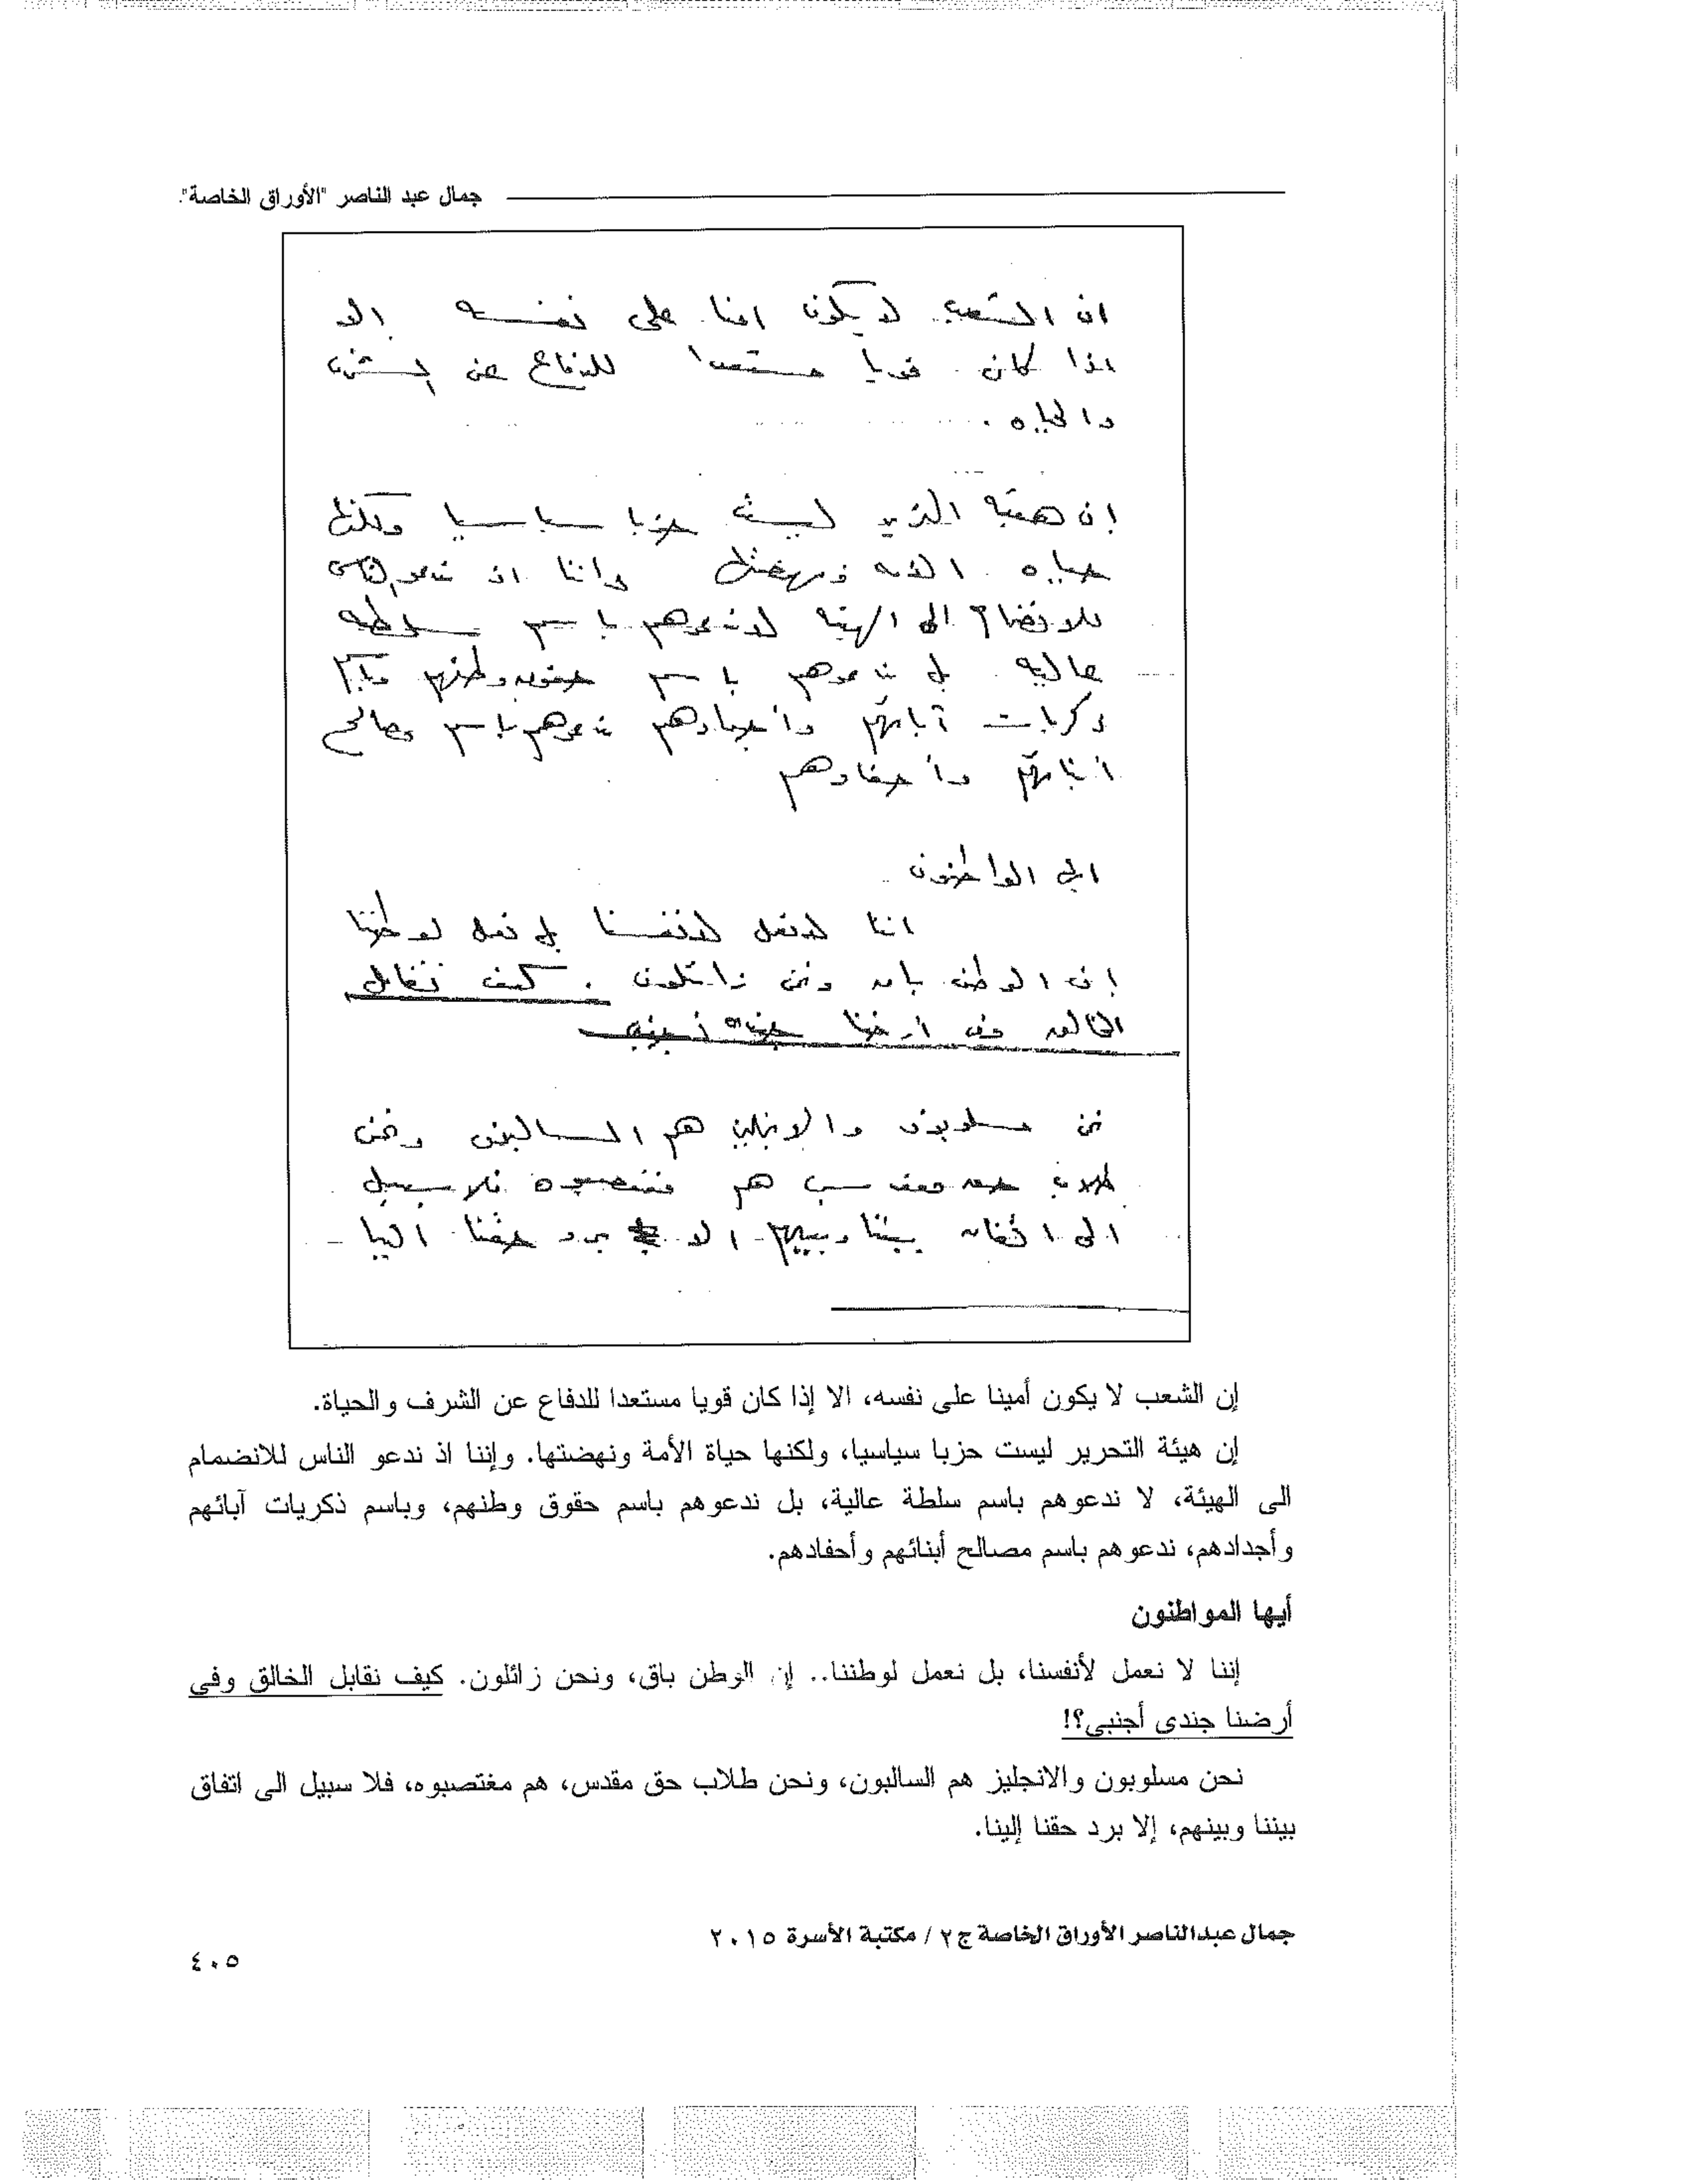 جمال عبد الناصر "الأوراق الخاصة".
ان الشعب لا يكون امنا على نفسه الا
اذا كان قويا مستعدا للدفاع عن الشرف
والحياه .
إن هيئه التحرير ليست حزبا سياسيا ولكنها
حياه الامه ونهضتها واننا اذ ندعو الناس
للانضمام الى الهيئه لا ندعوهم باسم سلطه
عاليه بل ندعوهم باسم حقوق وطنهم وباسم
ذكريات آبائهم وأجدادهم ندعوهم باسم مصالح
أبنائهم وأحفادهم
ايها المواطنون
اننا لا نعمل لانفسنا بل نعمل لوطننا
إن الوطن باق ونحن زائلون . كيف نقابل
الخالق وفى أرضنا جندى أجنبى
نحن مسلوبون والانجليز هم السالبون ونحن
طلاب حق مقدس هم مغتصبوه فلا سبيل
الى اتفاق بيننا وبينهم الا برد حقنا الينا -
إن الشعب لا يكون أمينا على نفسه، الا إذا كان قويا مستعدا للدفاع عن الشرف والحياة.
إن هيئة التحرير ليست حزبا سياسيا، ولكنها حياة الأمة ونهضتها. وإننا اذ ندعو الناس للانضمام
الى الهيئة، لا ندعوهم باسم سلطة عالية، بل ندعوهم باسم حقوق وطنهم، وباسم ذكريات آبائهم
وأجدادهم، ندعوهم باسم مصالح أبنائهم وأحفادهم.
أيها المواطنون
إننا لا نعمل لأنفسنا، بل نعمل لوطننا.. إن الوطن باق، ونحن زائلون. كيف نقابل الخالق وفى
أرضنا جندى أجنبى؟!
نحن مسلوبون والانجليز هم السالبون، ونحن طلاب حق مقدس، هم مغتصبوه، فلا سبيل الى اتفاق
بيننا وبينهم، إلا برد حقنا إلينا.
جمال عبدالناصر الأوراق الخاصة ج٢ / مكتبة الأسرة ٢٠١٥
٤٠٥